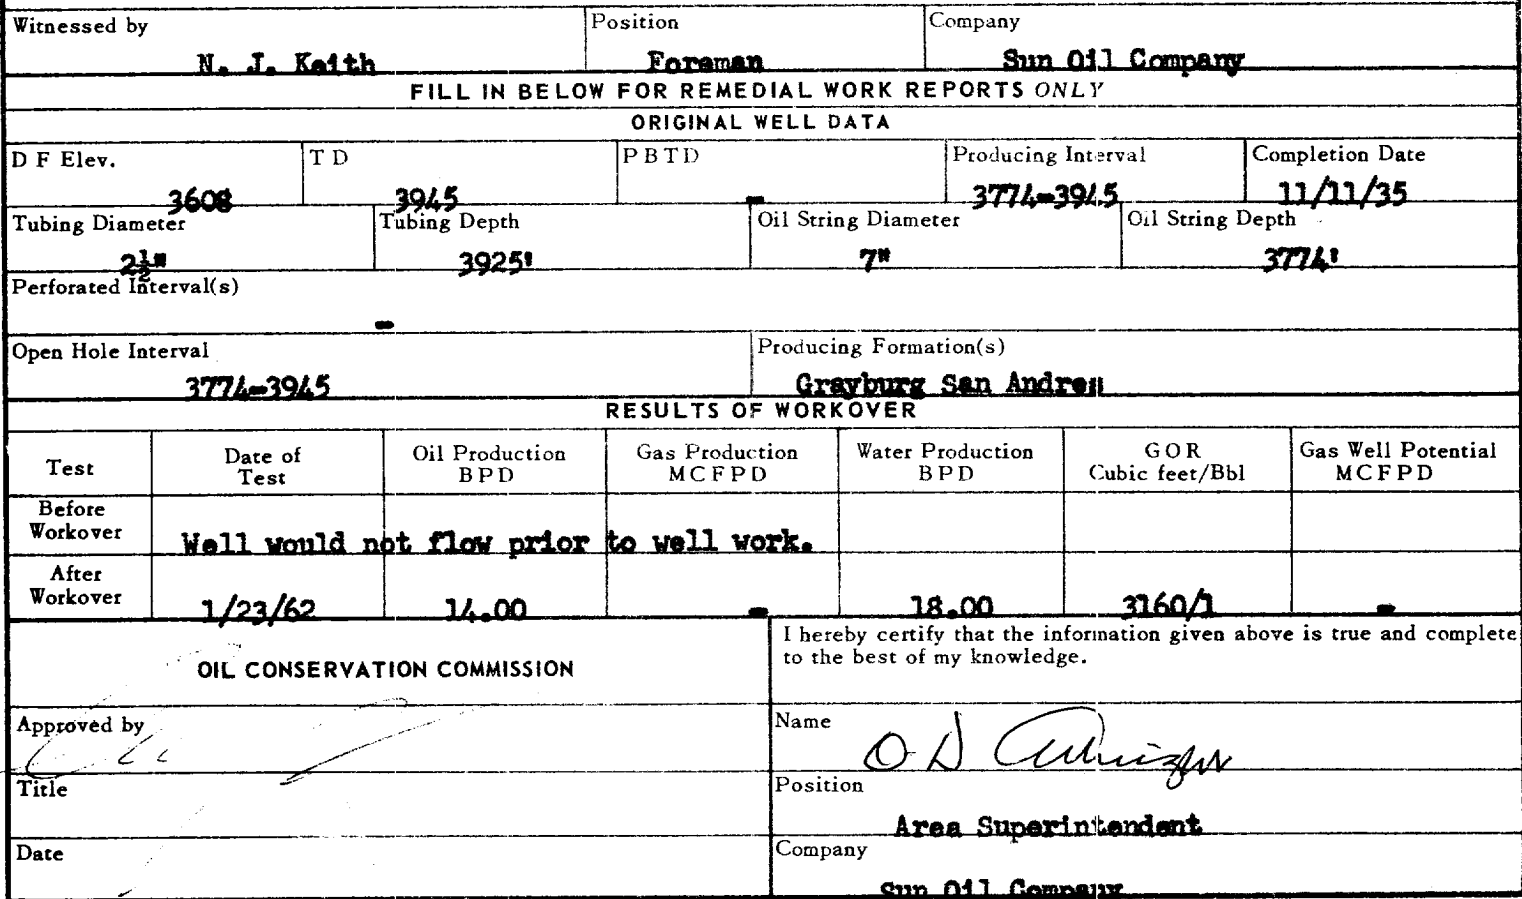 Witnessed by Position Company
N. J. Keith Foreman Sun Oil Company
FILL IN BELOW FOR REMEDIAL WORK REPORTS ONLY
ORIGINAL WELL DATA
D F Elev. T D P B T D Producing Interval Completion Date
3608 3945 - 3774-3945 11/11/35
Tubing Diameter Tubing Depth Oil String Diameter Oil String Depth
2½" 3925' 7" 3774'
Perforated Interval(s)
-
Open Hole Interval Producing Formation(s)
3774-3945 Grayburg San Andres
RESULTS OF WORKOVER
Test Date of Test Oil Production BPD Gas Production MCFPD Water Production BPD GOR Cubic feet/Bbl Gas Well Potential MCFPD
Before Workover Well would not flow prior to well work.
After Workover 1/23/62 14.00 - 18.00 3160/1 -
OIL CONSERVATION COMMISSION
I hereby certify that the information given above is true and complete
to the best of my knowledge.
Approved by
Name O D
Title
Position
Area Superintendent
Date
Company
Sun Oil Company